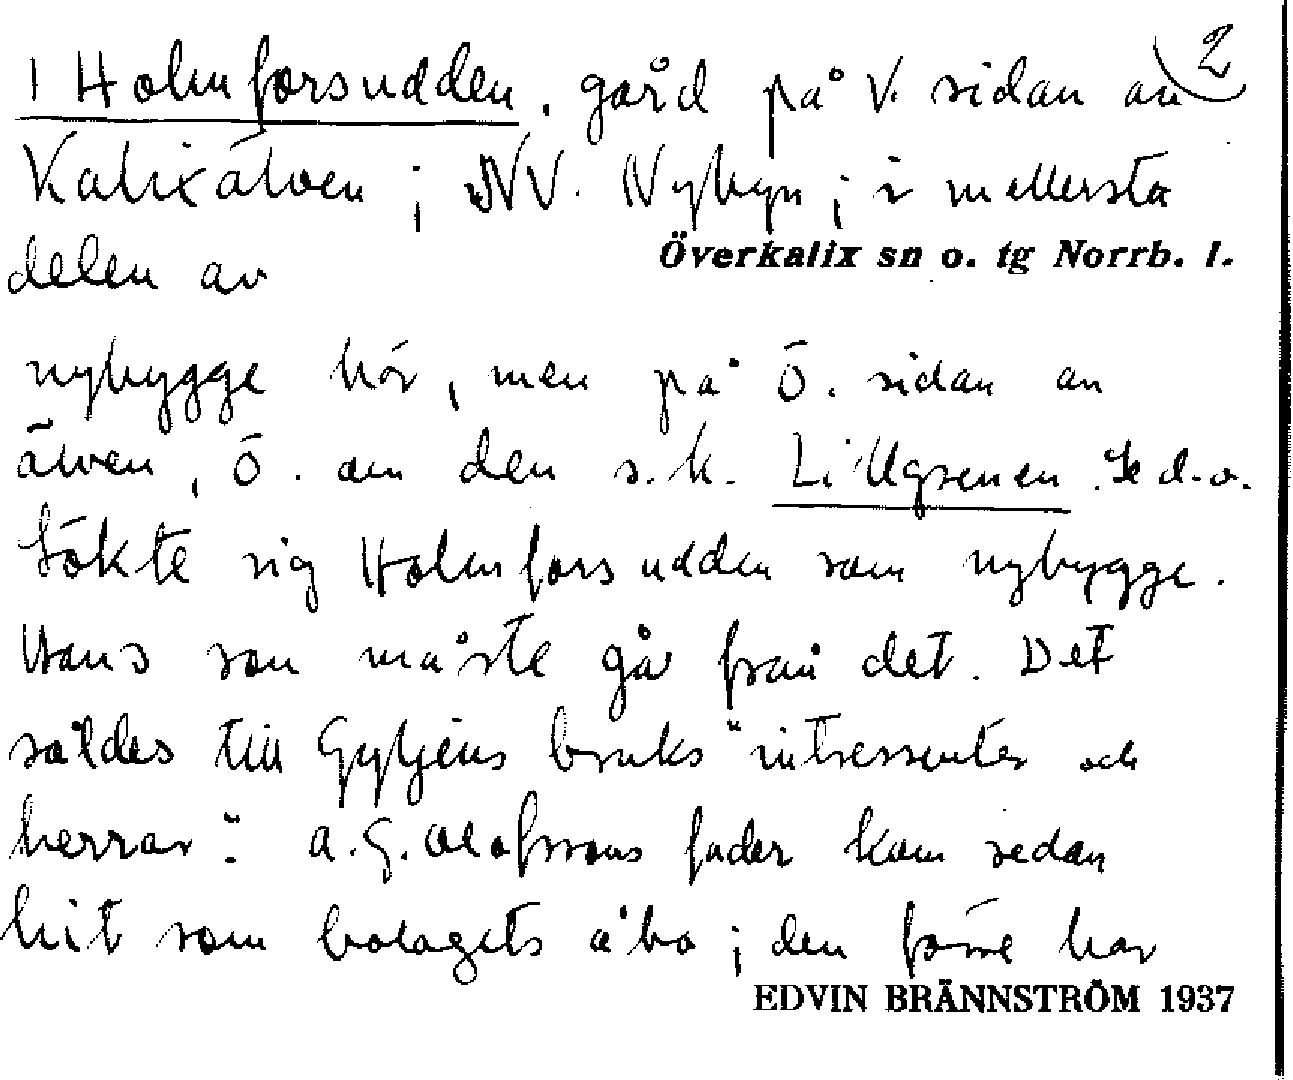 2
1 Holmforsudden. gård på V. sidan av
Kalixälven; NV. Nybyn; i mellersta
delen av Överkalix sn o. tg Norrb. l.
nybygge här, men på Ö. sidan av
älven, Ö. om den s.k. Lillgrenen. Se d.o.
Sökte sig Holmforsudden som nybygge.
Hans son måste gå från det. Det
såldes till Gyljens bruks "intressenter och
herrar". A.G. Olofssons fader kom sedan
hit som bolagets åbo; den förre har
EDVIN BRÄNNSTRÖM 1937